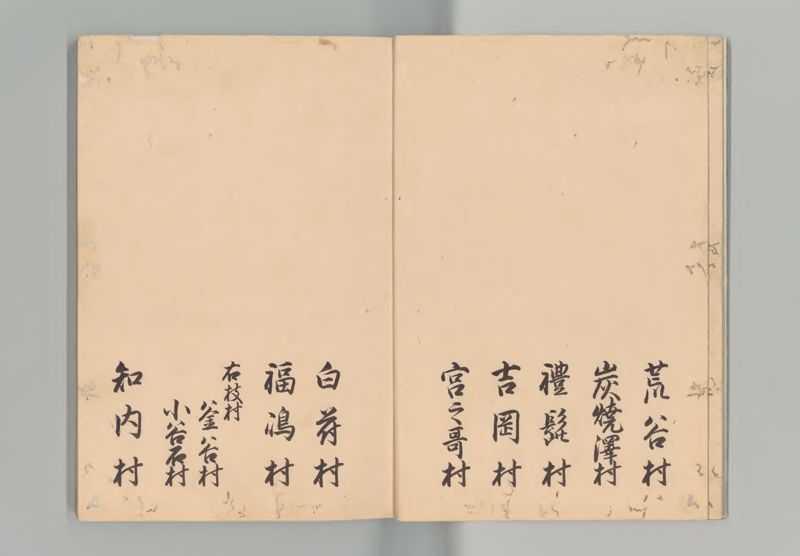 荒谷村
炭燒澤村
禮髭村
吉岡村
宮之哥村
白符村
福嶋村
右枝村
釜谷村
小谷石村
知内村